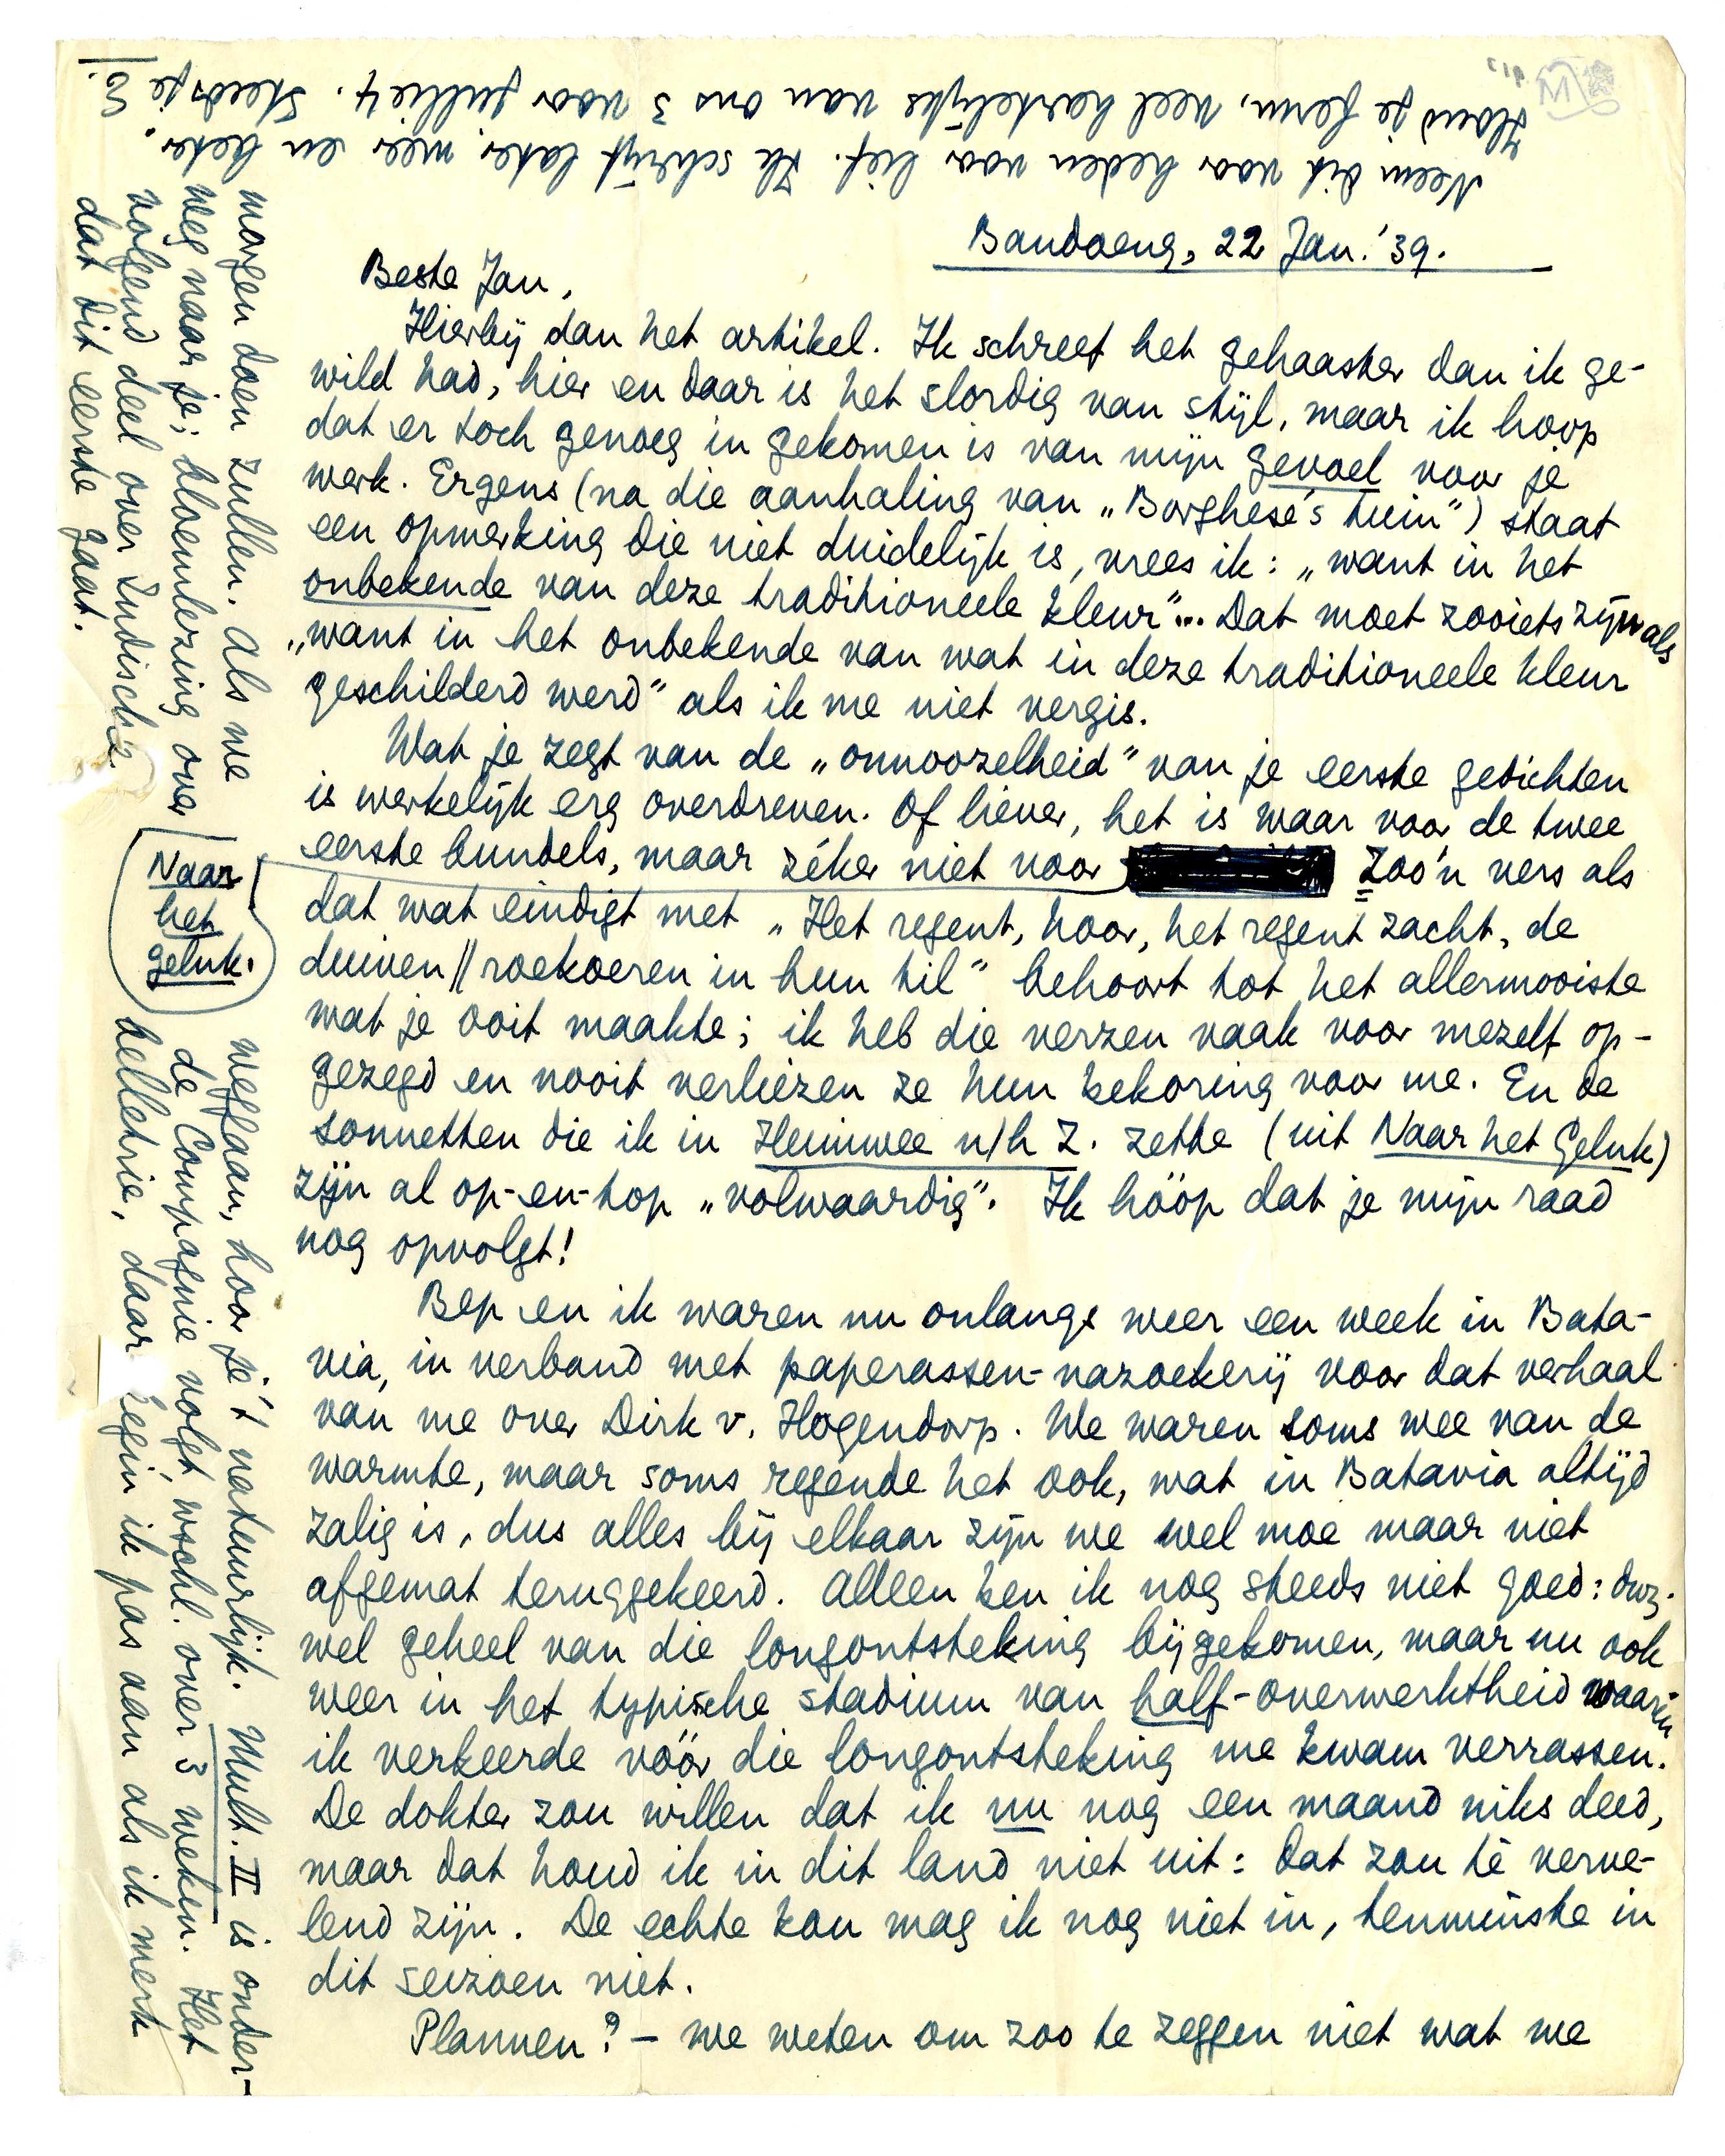 Bandoeng, 22 Jan. '39.
Beste Jan,
Hierbij dan het artikel. Ik schreef het gehaaster dan ik ge-
wild had, hier en daar is het slordig van stijl, maar ik hoop
dat er toch genoeg in gekomen is van mijn gevoel voor je
werk. Ergens (na die aanhaling van „Borghese's tuin") staat
een opmerking die niet duidelijk is, vrees ik: „want in het
onbekende van deze traditioneele kleur"... Dat moet zooiets zijn als
„want in het onbekende van wat in deze traditioneele kleur
geschilderd werd" als ik me niet vergis.
Wat je zegt van de „onnoozelheid" van je eerste gedichten
is werkelijk erg overdreven. Of liever, het is waar voor de twee
eerste bundels, maar zéker niet voor
Naar
het
geluk.
Zoo'n vers als
dat wat eindigt met „Het regent, hoor, het regent zacht, de
duiven // roekoeren in hun til" behoort tot het allermooiste
wat je ooit maakte; ik heb die verzen vaak voor mezelf op-
gezegd en nooit verliezen ze hun bekoring voor me. En de
sonnetten die ik in Heimwee n/h Z. zette (uit Naar het Geluk)
zijn al op-en-top „volwaardig". Ik hóóp dat je mijn raad
nog opvolgt!
Bep en ik waren nu onlangs weer een week in Bata-
via, in verband met paperassen-nazoekerij voor dat verhaal
van me over Dirk v. Hogendorp. We waren soms wee van de
warmte, maar soms regende het ook, wat in Batavia altijd
zalig is, dus alles bij elkaar zijn we wel moe maar niet
afgemat teruggekeerd. Alleen ben ik nog steeds niet goed: dwz.
wel geheel van die longontsteking bijgekomen, maar nu ook
weer in het typische stadium van half-overwerktheid waarin
ik verkeerde vóór die longontsteking me kwam verrassen.
De dokter zou willen dat ik nu nog een maand niks deed,
maar dat houd ik in dit land niet uit: dat zou té verve-
lend zijn. De echte kou mag ik nog niet in, tenminste in
dit seizoen niet.
Plannen? – we weten om zoo te zeggen niet wat we
morgen doen zullen. Als we weggaan, hoor je 't natuurlijk. Mult. II is onder-
weg naar je; bloemlezing over de Compagnie volgt wschl. over 3 weken. Het
volgend deel over Indische belletrie, daar begin ik pas aan als ik merk
dat dit eerste gaat.
Neem dit voor heden voor lief. Ik schrijf later meer en beter.
Houd je ferm, veel hartelijks van ons 3 voor jullie 4. Steeds je
E.